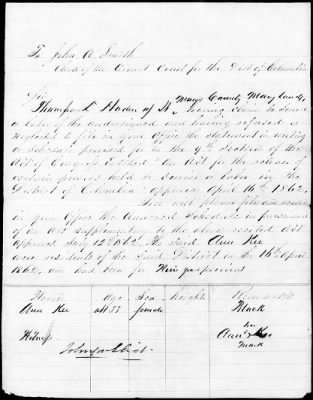 To John A. Smith
Clerk of the Circuit Court for the Dist of Columbia
Sir
of St Marys County Maryland
having claim to service
or labor the undersigned and having refused or
neglected to file in your office the statement in writing
or schedule provided for in the 9th Section of the
Act of Congress Entitled "An Act for the release of
certain persons held to service or labor in the
District of Columbia" approved April 16th 1862.
You will please file and
in your Office the annexed Schedule in pursuance
of the Act Supplementary to the above recited act
approved July 12th 1862. The Said Ann Kee
was residents of the Said District on the 16th April
1862, and had been for
Name age Sex height Remarks
Ann Kee abt 55 female Black
Witness her
Ann X Kee
mark